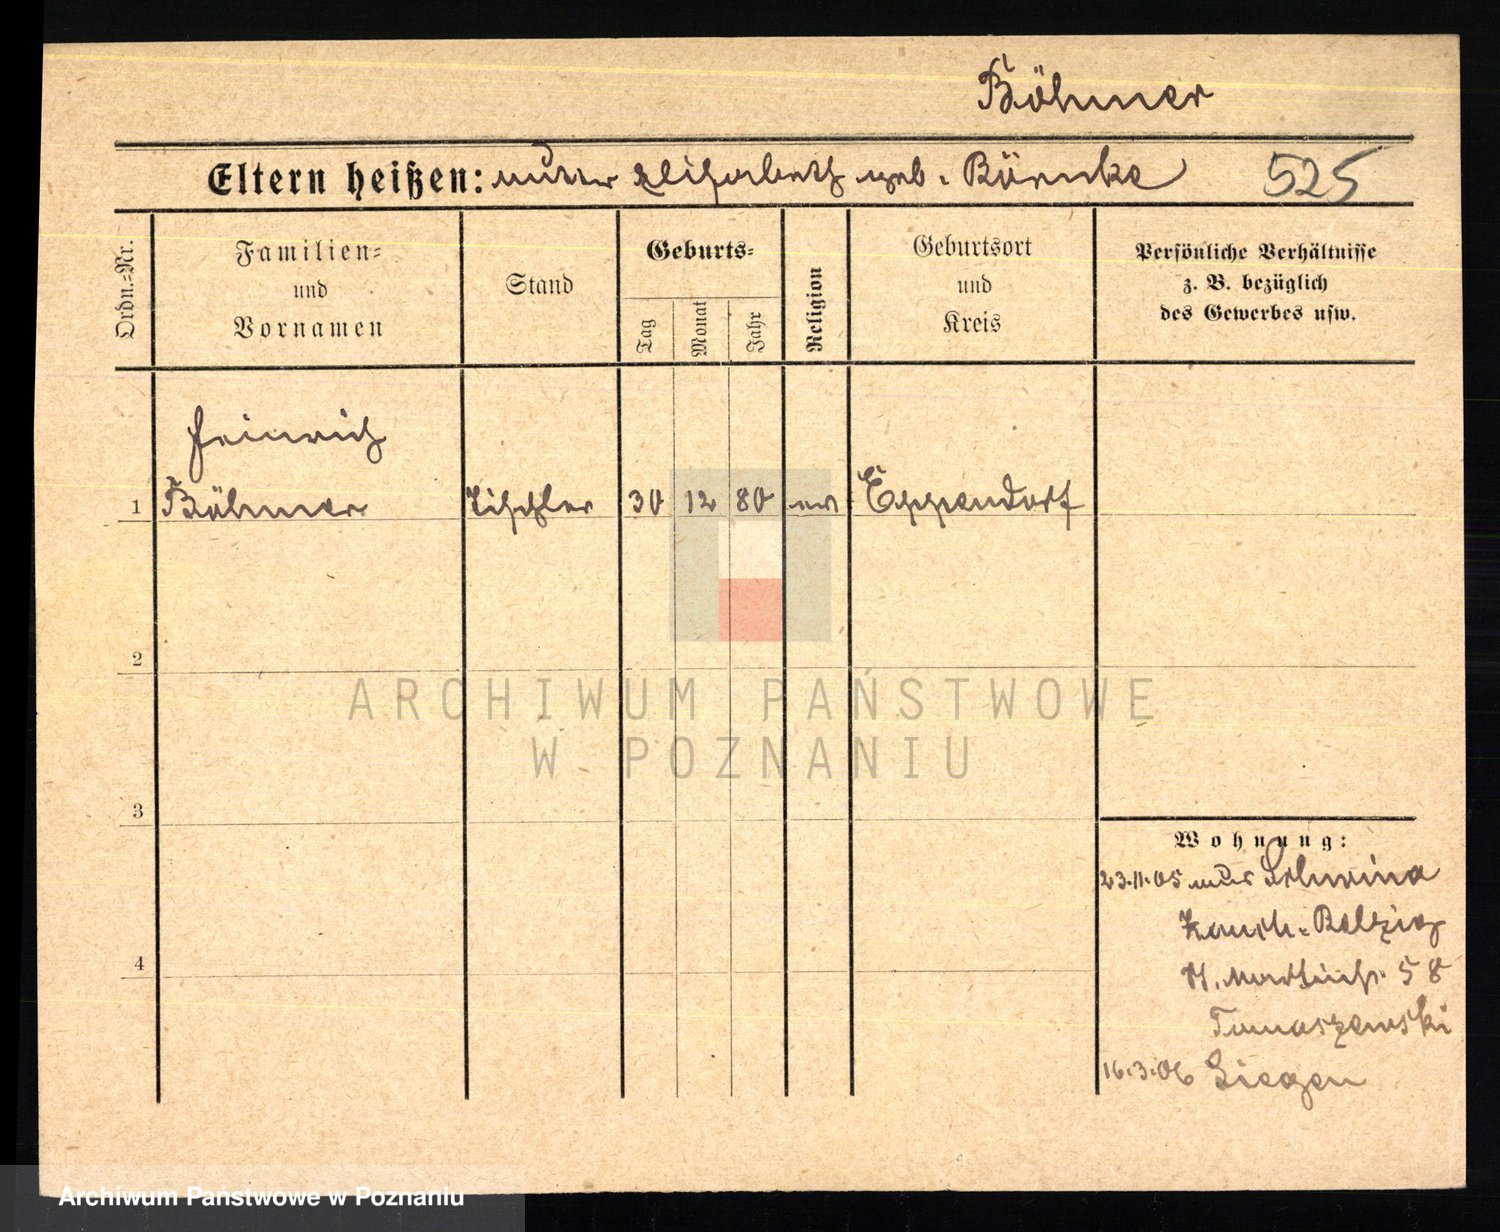 Böhmer
Eltern heißen: Elisabeth geb. Bärnke
525
Ordn.-Nr.
Familien-
und
Vornamen
Stand
Geburts-
Tag
Monat
Jahr
Religion
Geburtsort
und
Kreis
Persönliche Verhältnisse
z. B. bezüglich
des Gewerbes usw.
Heinrich
1 Böhmer Tischler 30 12 80 ev Eppendorf
2
ARCHIWUM PAŃSTWOWE
W POZNANIU
3
Wohnung:
23.11.05 aus
Belzig
St. Martinstr. 58
Tomaszewski
4
16.3.06 Siegen
Archiwum Państwowe w Poznaniu